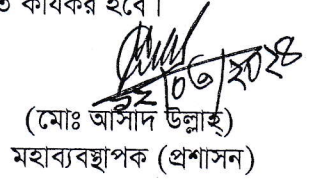 কার্যকর হবে।
১২/০৬/২০২৪
(মোঃ আসাদ উল্লাহ্)
মহাব্যবস্থাপক (প্রশাসন)